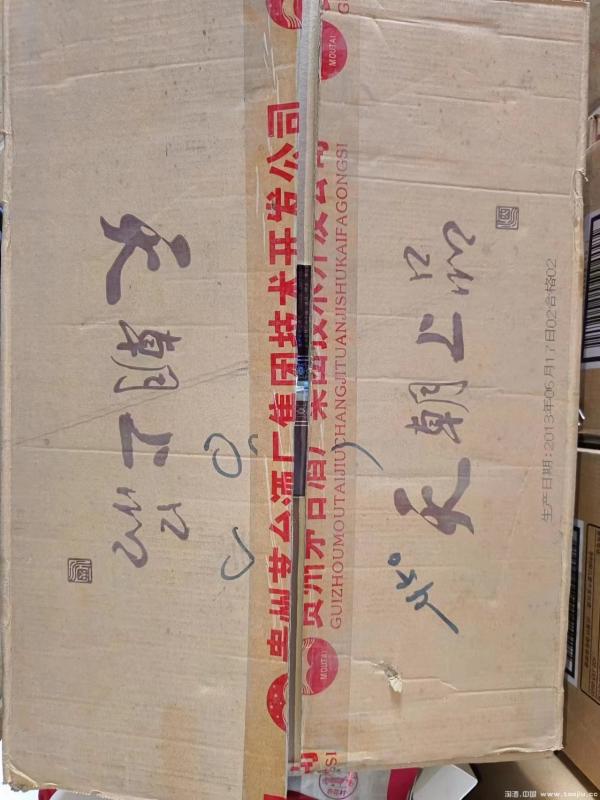 天朝上品
天朝上品
贵州茅台酒厂集团技术开发公司
贵州茅台酒厂集团技术开发公司
GUIZHOUMOUTAIJIUCHANGJITUANJISHUKAIFAGONGSI
MOUTAI
MOUTAI
GSI
生产日期:2013年06月17日02合格02
淘酒.中国 www.taojiu.cc